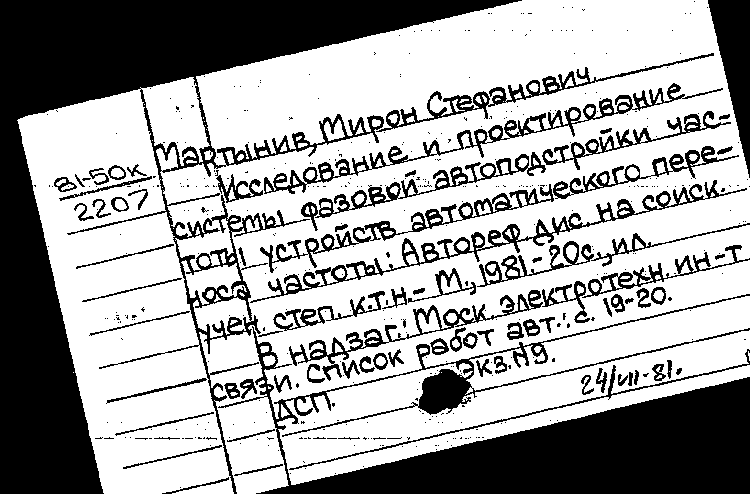 81-50к
2207
Мартынив, Мирон Стефанович.
Исследование и проектирование
системы фазовой автоподстройки час-
тоты устройств автоматического пере-
носа частоты: Автореф. дис. на соиск.
учен. степ. к.т.н.- М., 1981.- 20с., ил.
В надзаг.: Моск. электротехн. ин-т
связи. Список работ авт.: с. 19-20.
ДСП. Экз.№9.
24/VII-81.